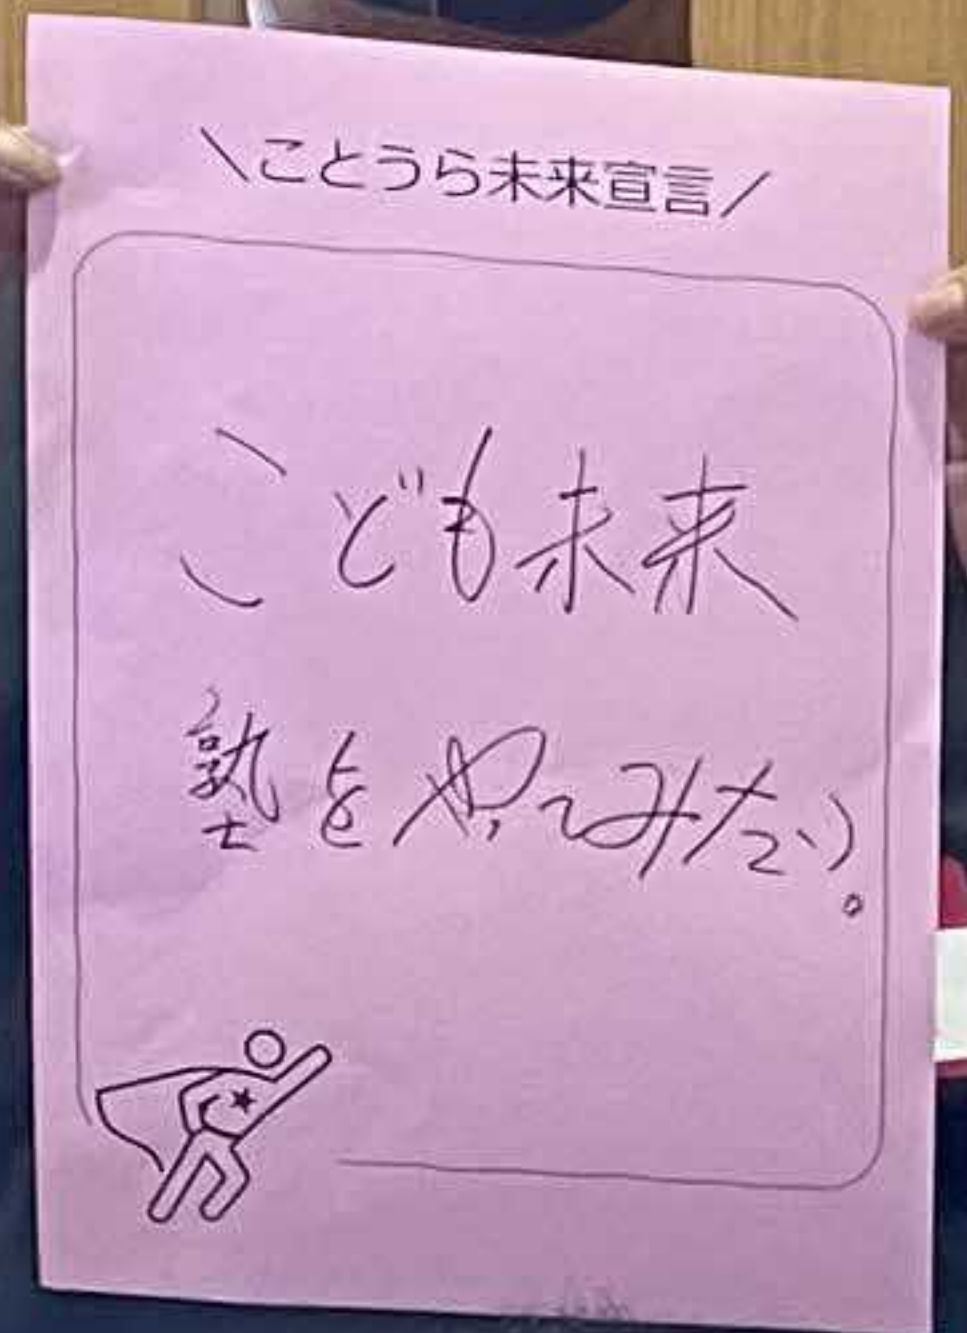 \ことうら未来宣言/
こども未来
塾をやってみたい。